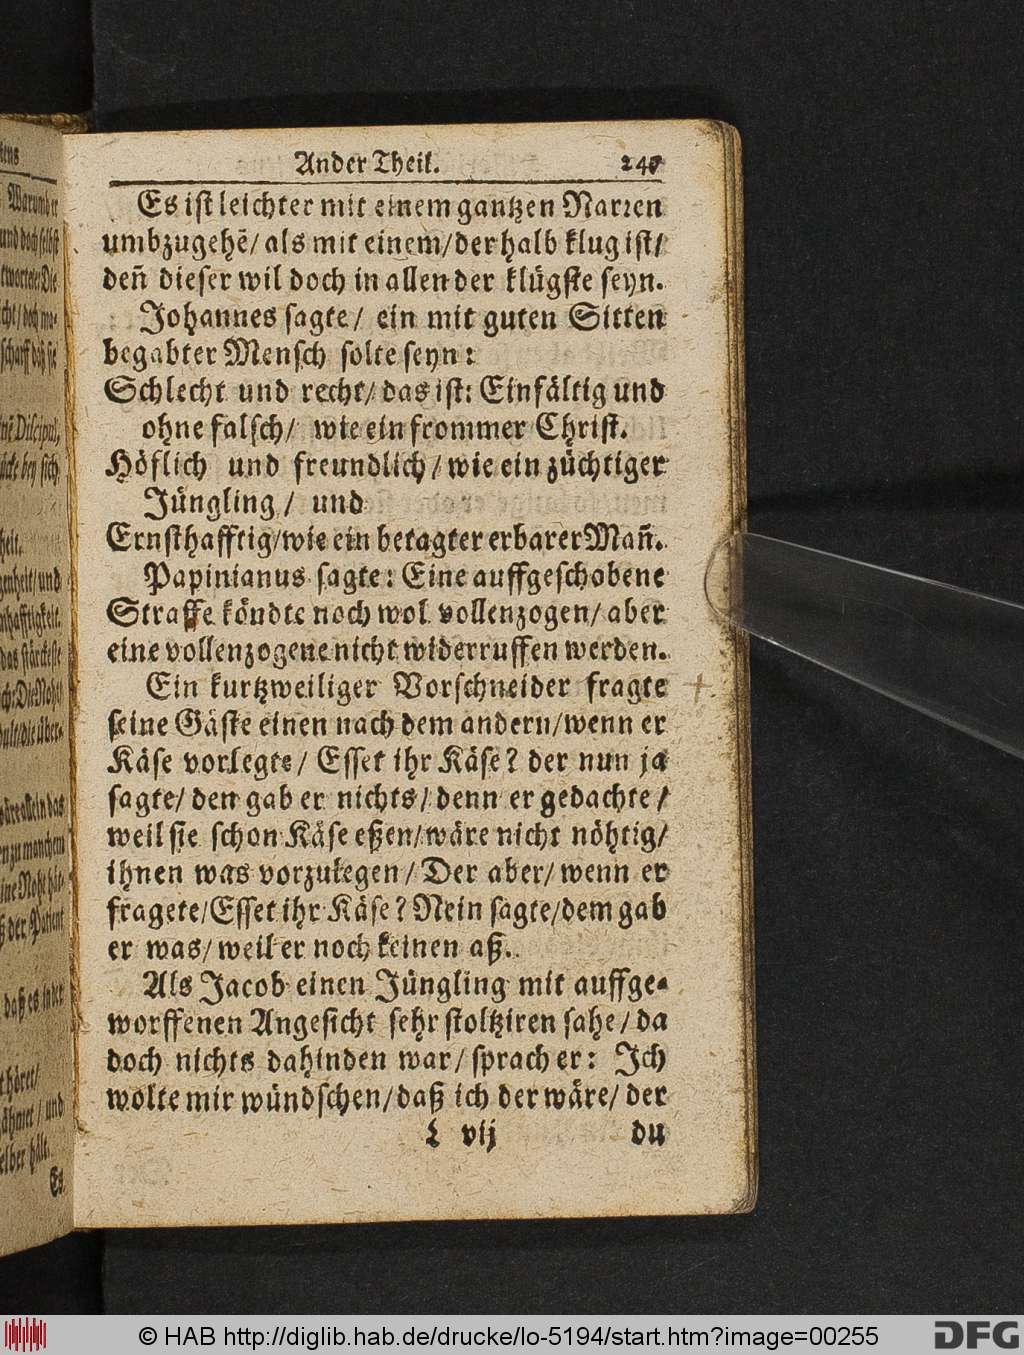 Ander Theil.
Es ist leichter mit einem gantzen Narren
umbzugehẽ/ als mit einem/ der halb klug ist/
deñ dieser wil doch in allen der klügste seyn.
Johannes sagte/ ein mit guten Sitten
begabter Mensch solte seyn:
Schlecht und recht/ das ist: Einfältig und
ohne falsch/ wie ein frommer Christ.
Höflich und freundlich/ wie ein züchtiger
Jüngling/ und
Ernsthafftig/ wie ein betagter erbarer Mañ.
Papinianus sagte: Eine auffgeschobene
Straffe köndte noch wol vollenzogen/ aber
eine vollenzogene nicht widerruffen werden.
Ein kurtzweiliger Vorschneider fragte
seine Gäste einen nach dem andern/ wenn er
Käse vorlegte/ Esset ihr Käse? der nun ja
sagte/ den gab er nichts/ denn er gedachte/
weil sie schon Käse eßen/ wäre nicht nöhtig/
ihnen was vorzulegen/ Der aber/ wenn er
fragete/ Esset ihr Käse? Nein sagte/ dem gab
er was/ weil er noch keinen aß.
Als Jacob einen Jüngling mit auffge-
worffenen Angesicht sehr stoltziren sahe/ da
doch nichts dahinden war/ sprach er: Ich
wolte mir wündschen/ daß ich der wäre/ der
L vij du
© HAB http://diglib.hab.de/drucke/lo-5194/start.htm?image=00255
DFG